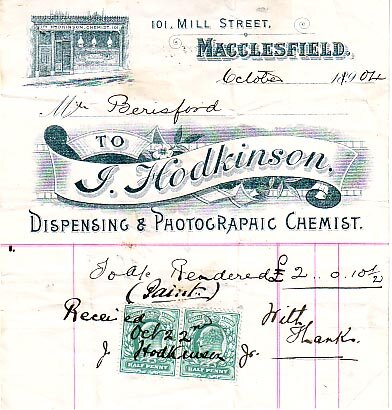 J. HODKINSON, CHEMIST. 101
101, MILL STREET,
MACCLESFIELD,
October 1904
Mr Berisford
TO
J. Hodkinson,
DISPENSING & PHOTOGRAPHIC CHEMIST.
To a/c Rendered £ 2 .. 0 .. 10½
(Paint.)
Received With
Oct 22nd Thanks.
J Hodkinson Jr.
HALF PENNY HALF PENNY